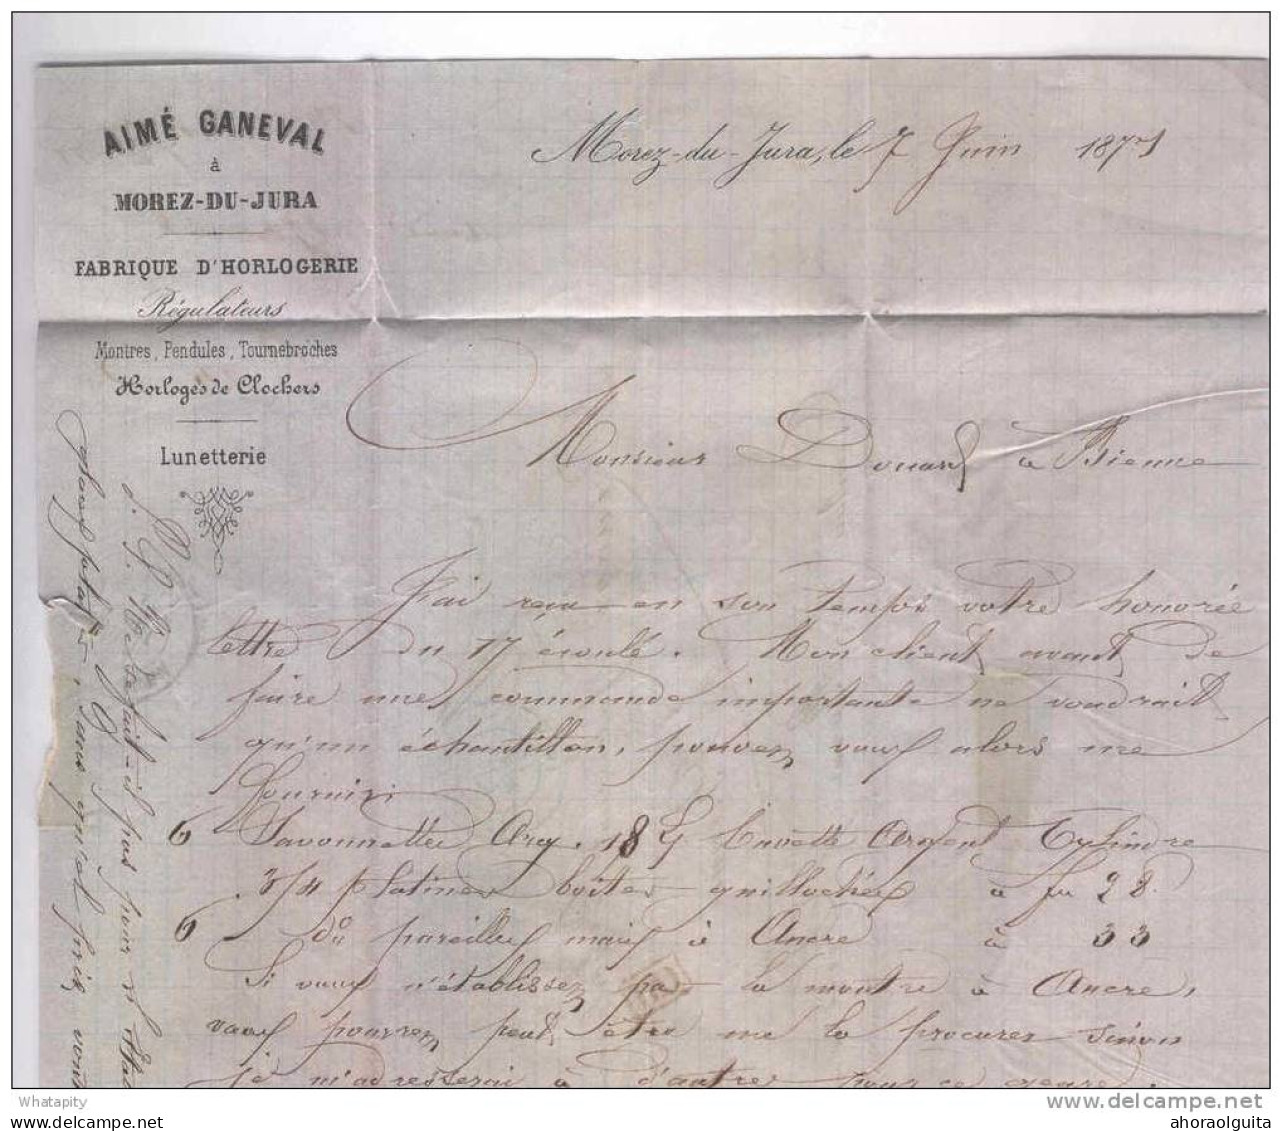 AIMÉ GANEVAL
à
MOREZ-DU-JURA
FABRIQUE D'HORLOGERIE
Régulateurs
Montres, Pendules, Tournebroches
Horloges de Clochers
Lunetterie
Morez-du-Jura, le 7 Juin 1871
Monsieur Douard à Bienne
J'ai reçu en son temps votre honorée
lettre du 17 écoulé. Mon client avant de
faire une commande importante ne voudrait
qu'un échantillon, pouvez vous alors me
fournir:
6 Savonnettes Arg. 18 L Cuvette Argent Cylindre
3/4 platines boîtes guillochées à fr 28.
6 do pareilles mais à Ancre à 33
Si vous n'établissez pas la montre à Ancre,
vous pourrez peut être me la procurer sinon
je m'adresserai à d'autres pour ce genre.
ne fait-il pas pour
sans
Whatapity
www.delcampe.net
ahoraolguita